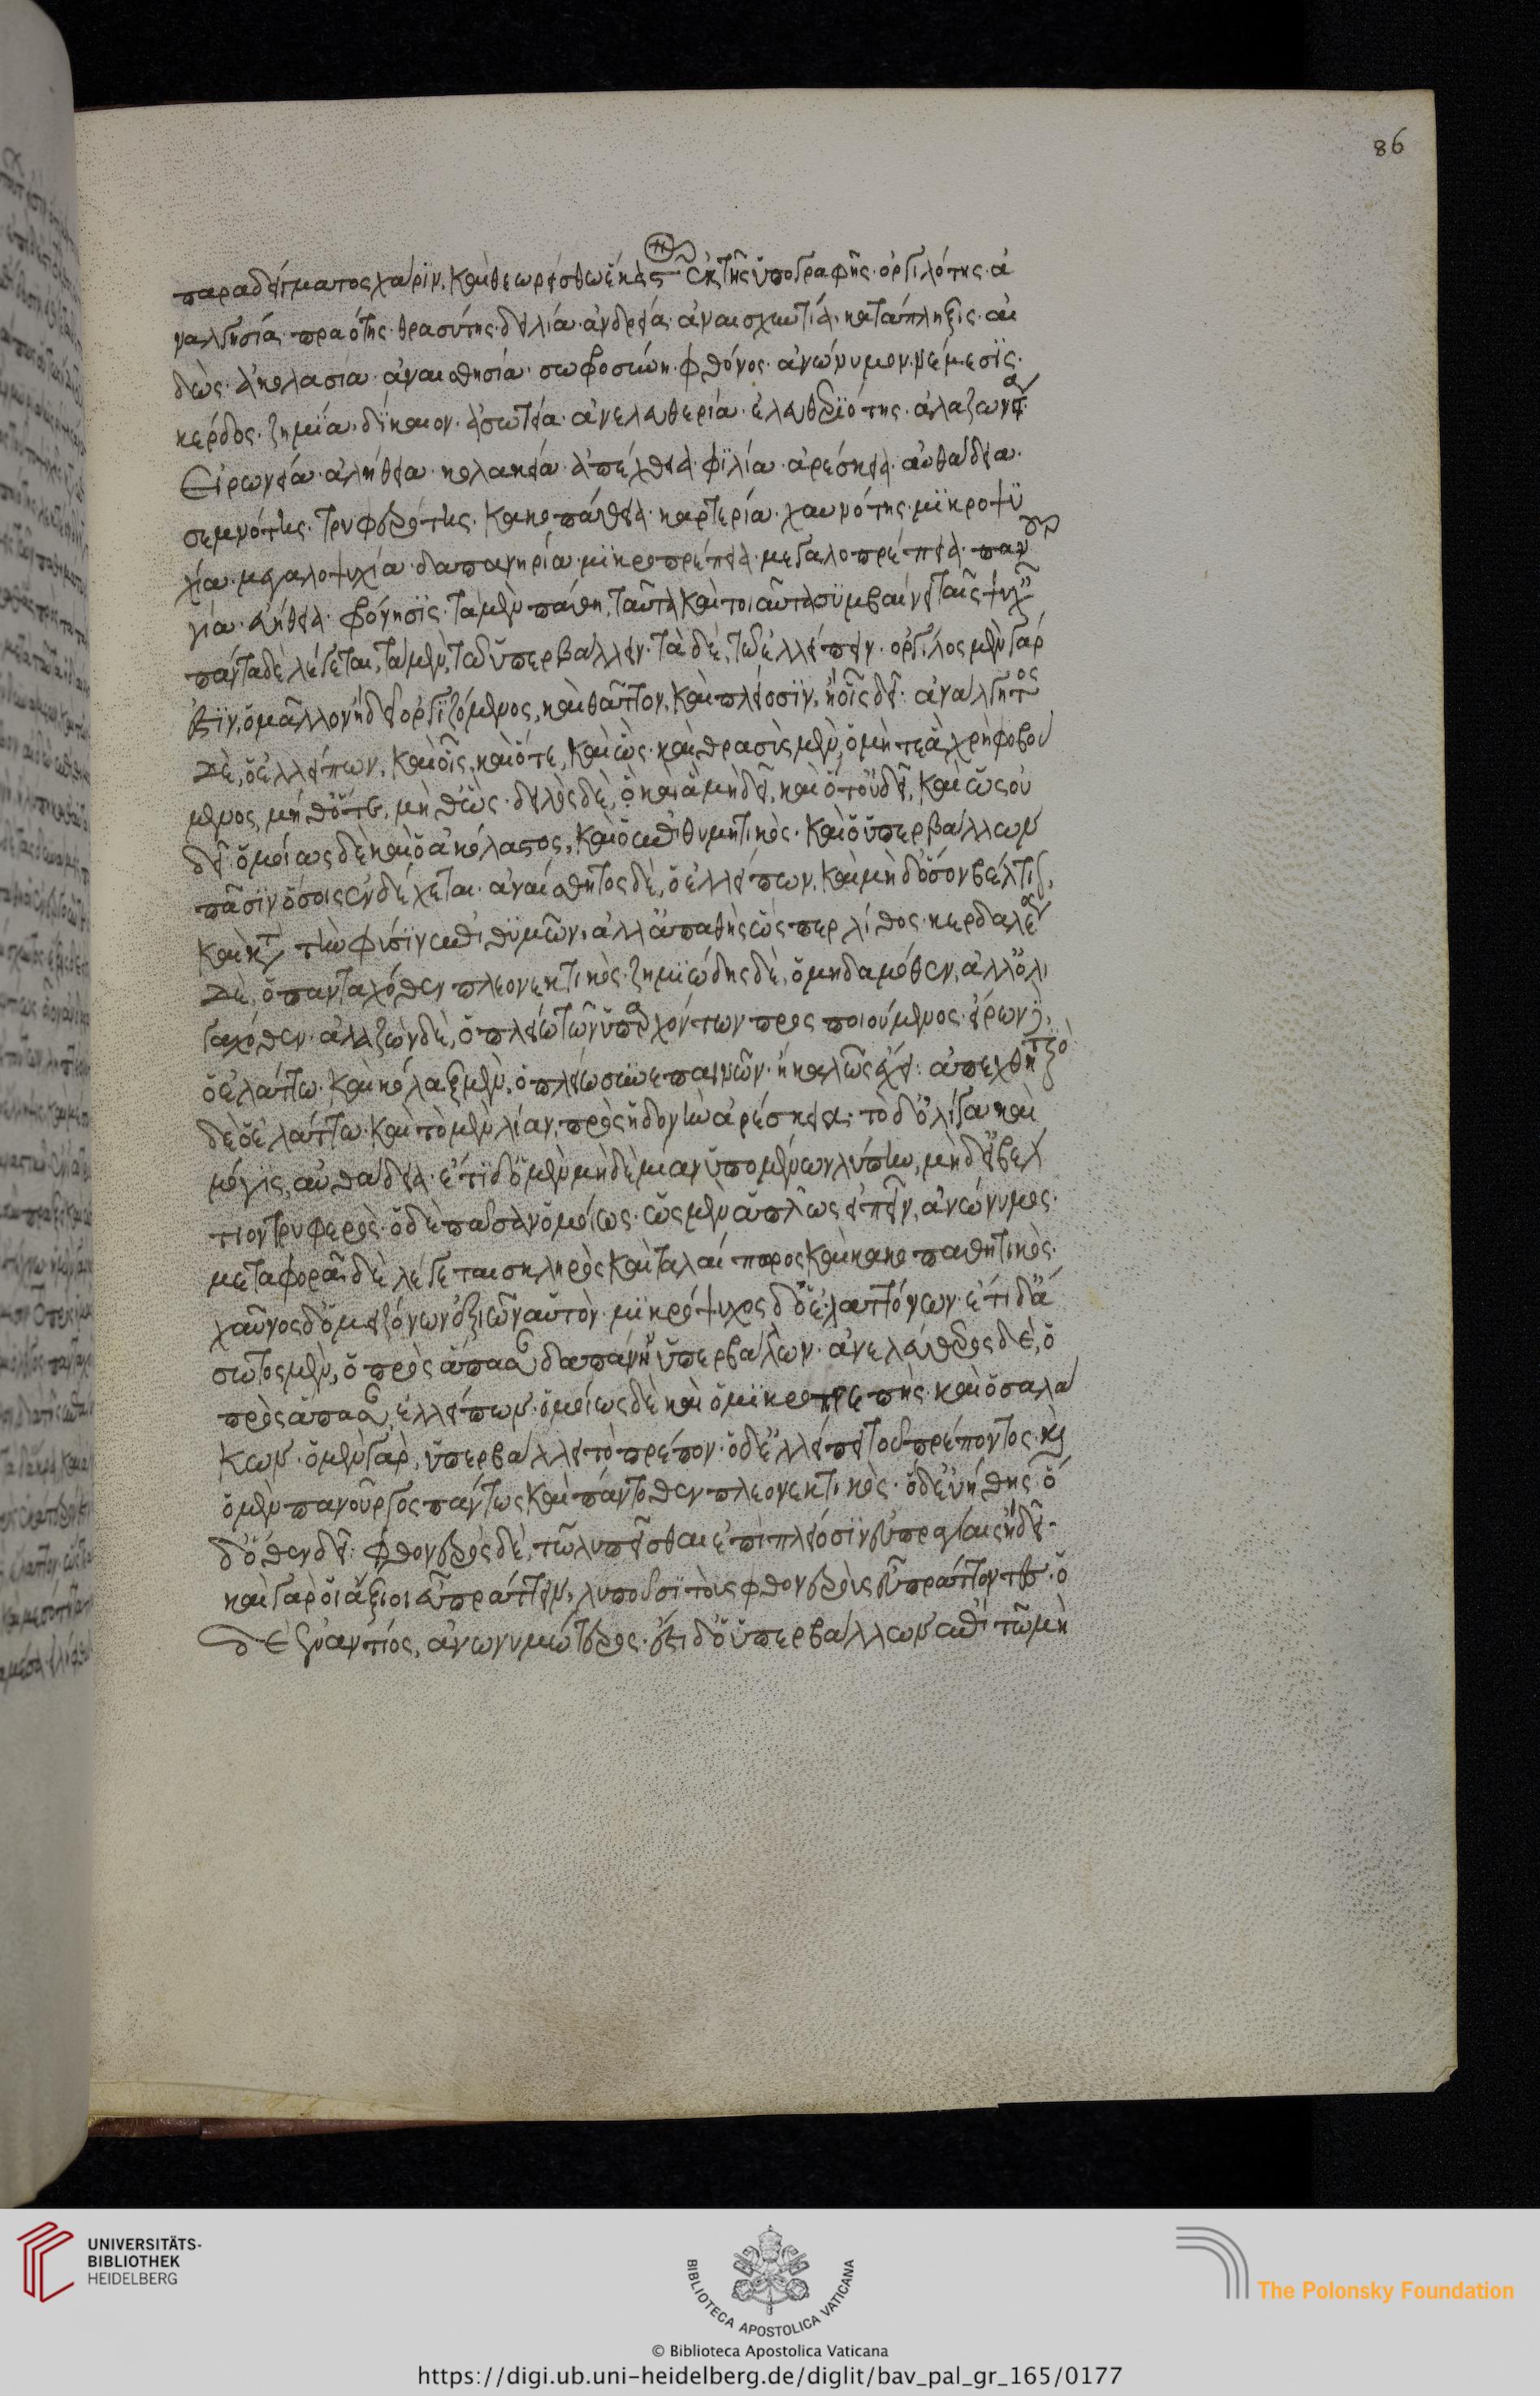 παραδείγματος χάριν, καὶ θεωρείσθω ἕκαστον ἐκ τῆς ὑπογραφῆς· ὀργιλότης· ἀ
ναλγησία· πραότης· θρασύτης· δειλία· ἀνδρεία· ἀναισχυντία· κατάπληξις· αἰ
δώς· ἀκολασία· ἀναισθησία· σωφροσύνη· φθόνος· ἀνώνυμον· νέμεσις·
κέρδος· ζημία· δίκαιον· ἀσωτεία· ἀνελευθερία· ἐλευθεριότης· ἀλαζωνεία·
Εἰρωνεία· ἀλήθεια· κολακεία· ἀπέχθεια· φιλία· ἀρέσκεια· αὐθάδεια·
σεμνότης· τρυφερότης· κακοπάθεια· καρτερία· χαυνότης· μικροψυ
χία· μεγαλοψυχία· δαπανηρία· μικροπρέπεια· μεγαλοπρέπεια· πανουρ
γία· εὐήθεια· φρόνησις· τὰ μὲν πάθη, ταῦτα καὶ τοιαῦτα συμβαίνει ταῖς ψυχαῖς
πάντα δὲ λέγεται, τὰ μὲν, τῶ ὑπερβάλλειν· τὰ δὲ, τῶ ἐλλείπειν· ὀργίλος μὲν γάρ
ἐστιν, ὁ μᾶλλον ἢ δεῖ ὀργιζόμενος, καὶ θᾶττον, καὶ πλείοσιν, ἢ οἷς δεῖ· ἀνάλγητος
δὲ, ὁ ἐλλείπων, καὶ οἷς, καὶ ὅτε, καὶ ὡς· καὶ θρασὺς μὲν, ὁ μήτε ἃ χρὴ φοβού
μενος, μήθ' ὅτε, μήθ' ὡς· δειλὸς δὲ, ὁ καὶ ἃ μὴ δεῖ, καὶ ὅτ' οὐ δεῖ, καὶ ὡς οὐ
δεῖ· ὁμοίως δὲ καὶ ὁ ἀκόλαστος, καὶ ὁ ἐπιθυμητικὸς· καὶ ὁ ὑπερβάλλων
πᾶσιν ὅσοις ἐνδέχεται· ἀναίσθητος δὲ, ὁ ἐλλείπων, καὶ μὴ δ' ὅσον βέλτιον,
καὶ κατὰ τὴν φύσιν ἐπιθυμῶν, ἀλλ' ἀπαθὴς ὥσπερ λίθος· κερδαλέος
δὲ, ὁ πανταχόθεν πλεονεκτικὸς· ζημιώδης δὲ, ὁ μηδαμόθεν, ἀλλ' ὀλι
γαχόθεν· ἀλαζὼν δὲ, ὁ πλείω τῶν ὑπαρχόντων προσποιούμενος· εἴρων δὲ,
ὁ ἐλάττω· καὶ κόλαξ μὲν, ὁ πλείω συνεπαινῶν· ἢ καλῶς ἔχει· ἀπεχθητικὸς
δὲ ὁ ἐλάττω· καὶ τὸ μὲν λίαν, πρὸς ἡδονὴν ἀρέσκεια· τὸ δ' ὀλίγα καὶ
μόγις, αὐθάδεια· ἔτι δ' ὁ μὲν μηδὲ μίαν ὑπομένων λύπην, μὴ δ' εἰ βέλ
τιον τρυφερὸς· ὁ δὲ πᾶσαν ὁμοίως· ὡς μὲν ἁπλῶς εἰπεῖν, ἀνώνυμος·
μεταφορᾶ δὲ λέγεται σκληρὸς καὶ ταλαίπωρος καὶ κακοπαθητικὸς·
χαῦνος δ' ὁ μειζόνων ἀξιῶν αὑτὸν· μικρόψυχος δ' ὁ ἐλαττόνων· ἔτι δ' ἄ
σωτος μὲν, ὁ πρὸς ἅπασαν δαπάνην ὑπερβάλλων· ἀνελεύθερος δὲ, ὁ
πρὸς ἅπασαν, ἐλλείπων· ὁμοίως δὲ καὶ ὁ μικροπρεπὴς· καὶ ὁ σαλά
κων· ὁ μὲν γὰρ, ὑπερβάλλει τὸ πρέπον· ὁ δ' ἐλλείπει τοῦ πρέποντος· καὶ
ὁ μὲν πανοῦργος πάντως καὶ πάντοθεν πλεονεκτικὸς· ὁ δ' εὐήθης ὁ
δ' ὅθεν δεῖ· φθονερὸς δὲ, τῶ λυπεῖσθαι ἐπὶ πλείοσιν εὐπραγίαις ἢ δεῖ·
καὶ γὰρ οἱ ἄξιοι εὖ πράττειν, λυποῦσι τοὺς φθονεροὺς εὖ πράττοντες· ὁ
δ' ἐναντίος, ἀνωνυμώτερος· ἔστι δ' ὁ ὑπερβάλλων ἐπὶ τῶ μὴ
86
UNIVERSITÄTS-
BIBLIOTHEK
HEIDELBERG
BIBLIOTECA APOSTOLICA VATICANA
The Polonsky Foundation
© Biblioteca Apostolica Vaticana
https://digi.ub.uni-heidelberg.de/diglit/bav_pal_gr_165/0177